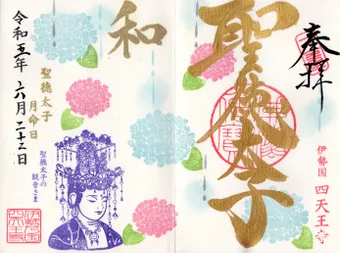 奉拝
聖徳太子
伊勢国 四天王寺
和
聖徳太子
月命日
令和五年 六月二十二日
聖徳太子の
観音さま